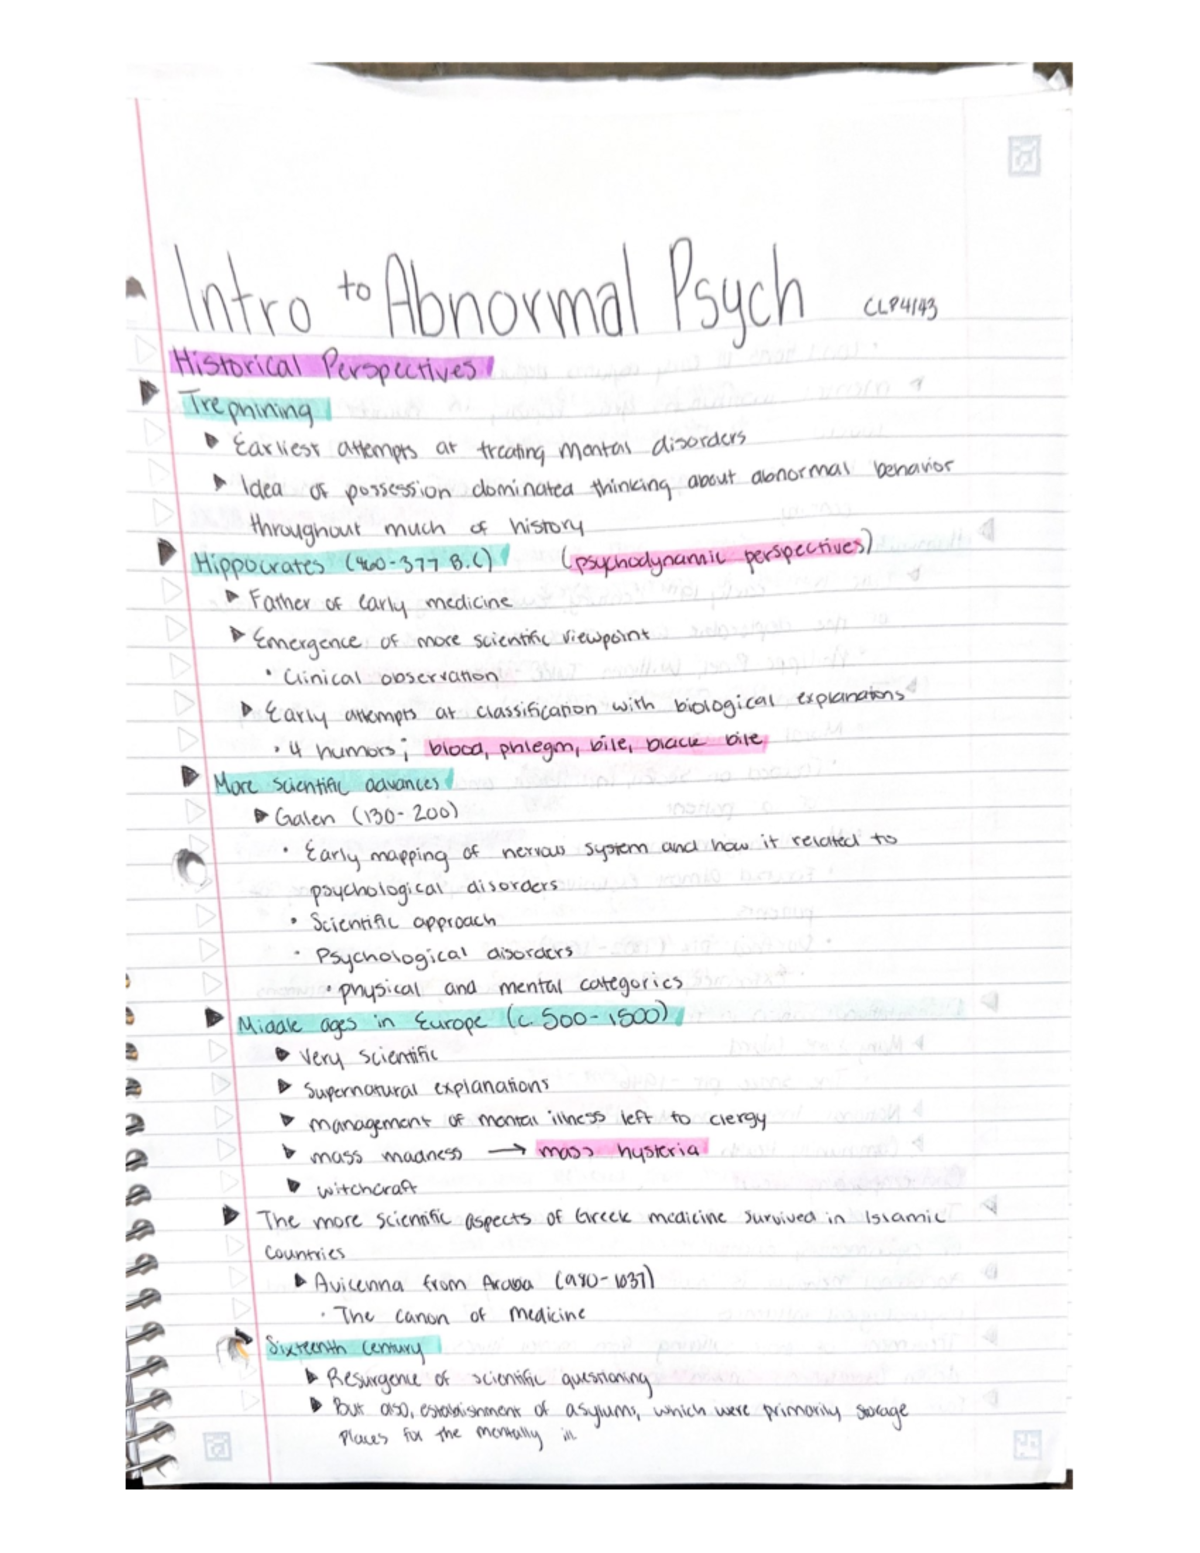 Intro to Abnormal Psych CLP4143
Historical Perspectives
Trephining
Earliest attempts at treating mental disorders
Idea of possession dominated thinking about abnormal behavior
throughout much of history
Hippocrates (460-377 B.C) (psychodynamic perspectives)
Father of early medicine
Emergence of more scientific viewpoint
• Clinical observation
Early attempts at classification with biological explanations
• 4 humors; blood, phlegm, bile, black bile
More scientific advances
Galen (130-200)
• Early mapping of nervous system and how it related to
psychological disorders
• Scientific approach
• Psychological disorders
• physical and mental categories
Middle ages in Europe (c. 500-1500)
Very scientific
Supernatural explanations
management of mental illness left to clergy
mass madness → mass hysteria
witchcraft
The more scientific aspects of Greek medicine survived in Islamic
Countries
Avicenna from Arabia (980-1037)
• The canon of medicine
Sixteenth century
Resurgence of scientific questioning
But also, establishment of asylums, which were primarily storage
places for the mentally ill